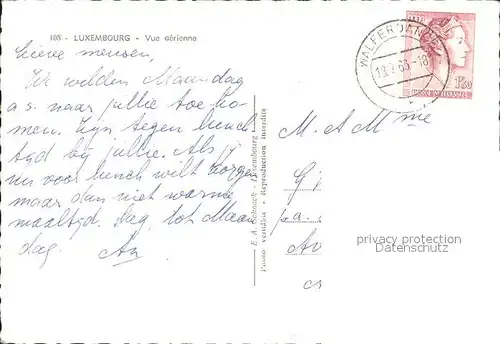 108 - LUXEMBOURG - Vue aérienne
Lieve mensen,
We wilden Maandag
a.s. naar jullie toe ko-
men. Zijn tegen lunch
tijd bij jullie. Als jij
nu voor lunch wilt zorgen
maar dan niet warme
maaltijd. Dag, tot Maan
dag.
An
E. A. Schaack - Luxembourg
Photo véritable - Reproduction interdite
WALFERDANGE
1F50
LUXEMBOURG
M. et Mme
G
p.a.
Av
privacy protection
Datenschutz